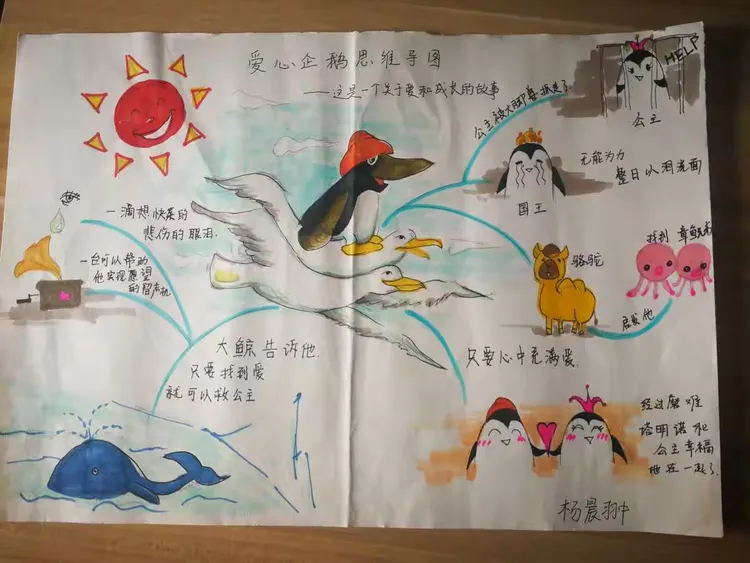 爱心企鹅思维导图
——这是一个关于爱和成长的故事
HELP
公主
公主被大脚毒抓走了
国王
无能为力
整日以泪洗面
骆驼
找到章鱼
启发他
只要心中充满爱
经过磨难
塔明诺和
公主幸福
地在一起了
一滴想快乐的
悲伤的眼泪
一台可以帮助
他实现愿望
的留声机
大鲸告诉他
只要找到爱
就可以救公主
杨晨翀